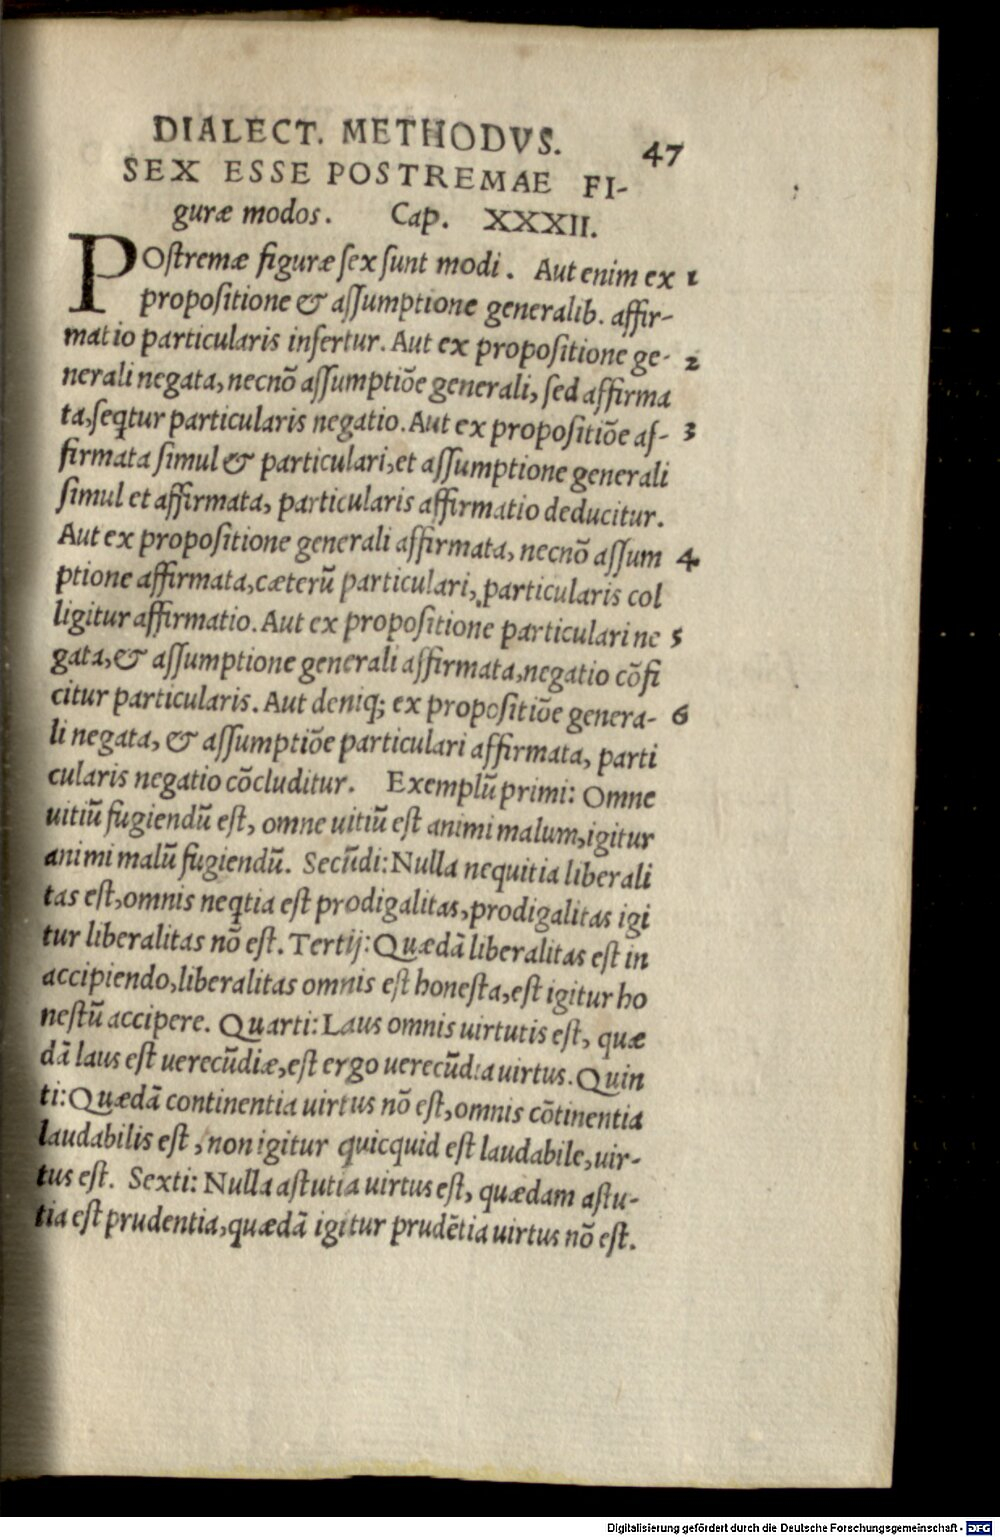 DIALECT. METHODVS. 47
SEX ESSE POSTREMAE FI-
guræ modos. Cap. XXXII.
POſtremæ figuræ ſex ſunt modi. Aut enim ex 1
propoſitione & aſſumptione generalib. affir-
matio particularis infertur. Aut ex propoſitione ge- 2
nerali negata, necnõ aſſumptiõe generali, ſed affirma
ta, ſeq̃tur particularis negatio. Aut ex propoſitiõe af- 3
firmata ſimul & particulari, et aſſumptione generali
ſimul et affirmata, particularis affirmatio deducitur.
Aut ex propoſitione generali affirmata, necnõ aſſum 4
ptione affirmata, cæterũ particulari, particularis col
ligitur affirmatio. Aut ex propoſitione particulari ne 5
gata, & aſſumptione generali affirmata, negatio cõfi
citur particularis. Aut deniq; ex propoſitiõe genera- 6
li negata, & aſſumptiõe particulari affirmata, parti
cularis negatio cõcluditur. Exemplũ primi: Omne
uitiũ fugiendũ eſt, omne uitiũ eſt animi malum, igitur
animi malũ fugiendũ. Secũdi: Nulla nequitia liberali
tas eſt, omnis neq̃tia eſt prodigalitas, prodigalitas igi
tur liberalitas nõ eſt. Tertij: Quædã liberalitas eſt in
accipiendo, liberalitas omnis eſt honeſta, eſt igitur ho
neſtũ accipere. Quarti: Laus omnis uirtutis eſt, quæ
dã laus eſt uerecũdiæ, eſt ergo uerecũdia uirtus. Quin
ti: Quædã continentia uirtus nõ eſt, omnis cõtinentia
laudabilis eſt, non igitur quicquid eſt laudabile, uir-
tus eſt. Sexti: Nulla aſtutia uirtus eſt, quædam aſtu-
tia eſt prudentia, quædã igitur prudẽtia uirtus nõ eſt.
Digitalisierung gefördert durch die Deutsche Forschungsgemeinschaft - DFG